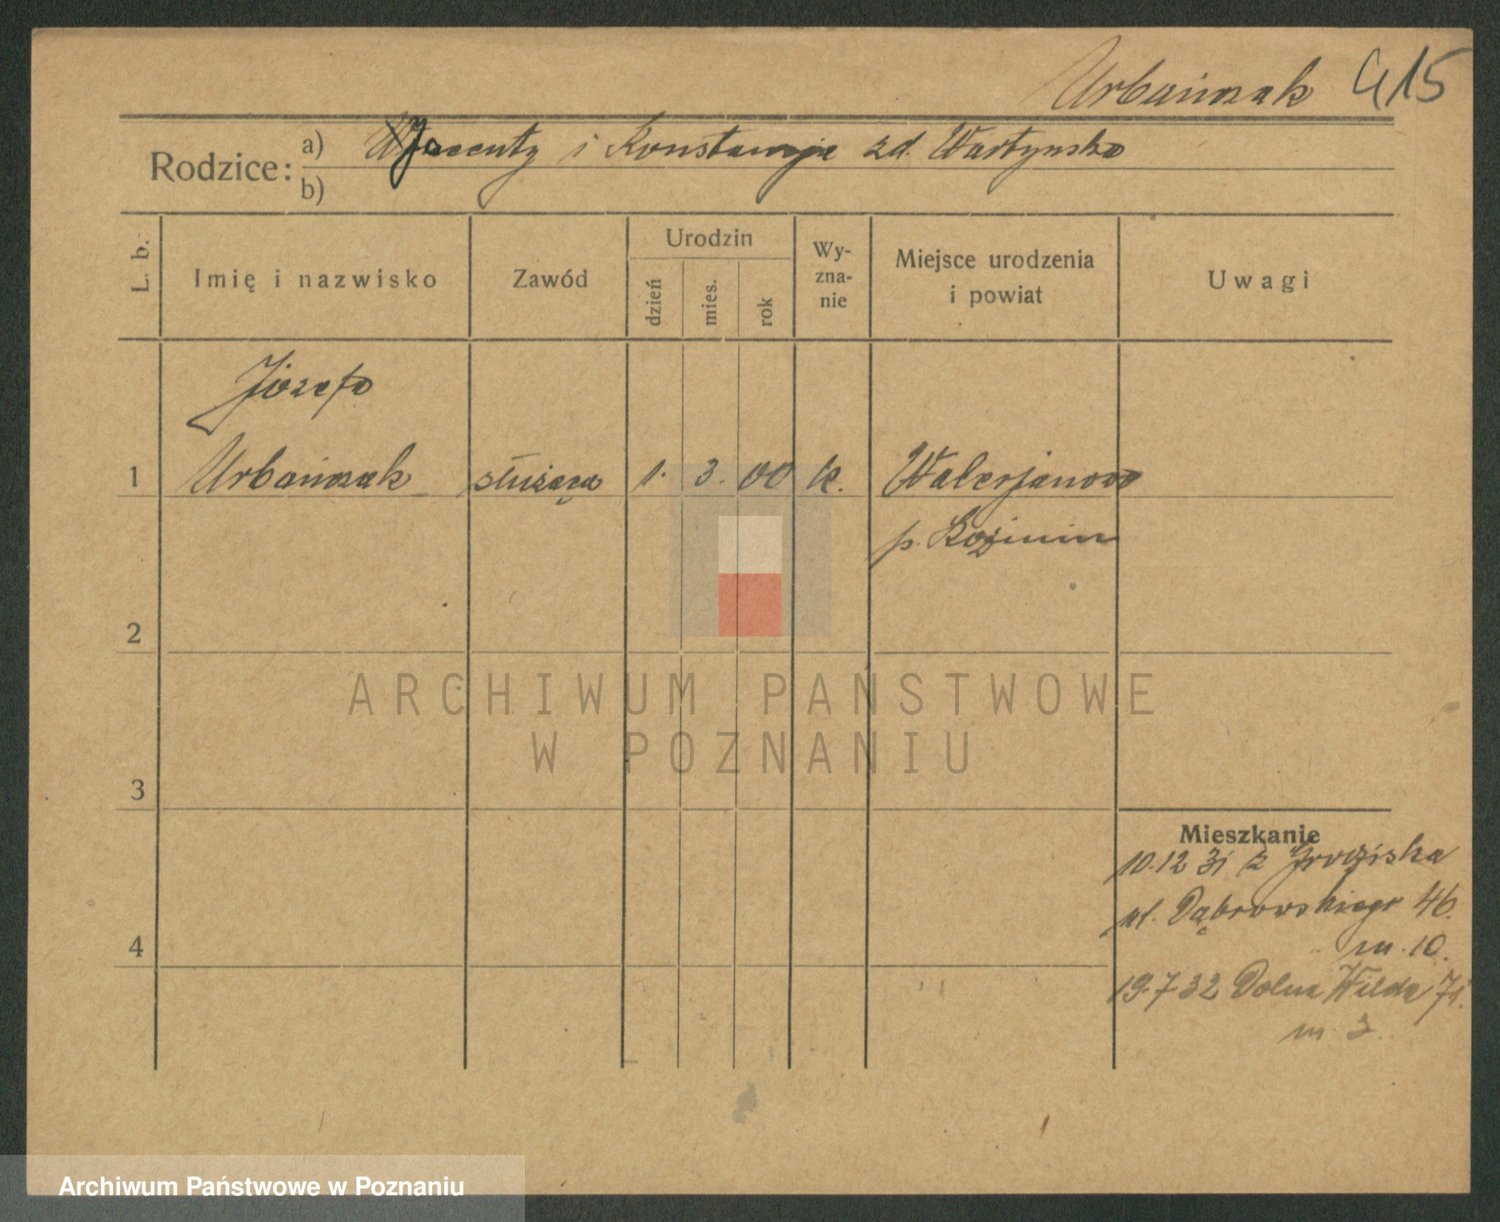 Urbańczak 415
Rodzice: a) Jacenty i Konstancja zd. Wartyńska
b)
L. b.
Imię i nazwisko
Zawód
Urodzin
dzień
mies.
rok
Wy-
zna-
nie
Miejsce urodzenia
i powiat
Uwagi
Józefa
1 Urbańczak służąca 1. 3. 00 k. Walerjanowo
p. Koźmin
2
ARCHIWUM PAŃSTWOWE
W POZNANIU
3
Mieszkanie
10.12 31 z Grodziska
ul. Dąbrowskiego 46.
m. 10.
4
19.7 32 Dolna Wilda 71.
m. 3.
Archiwum Państwowe w Poznaniu